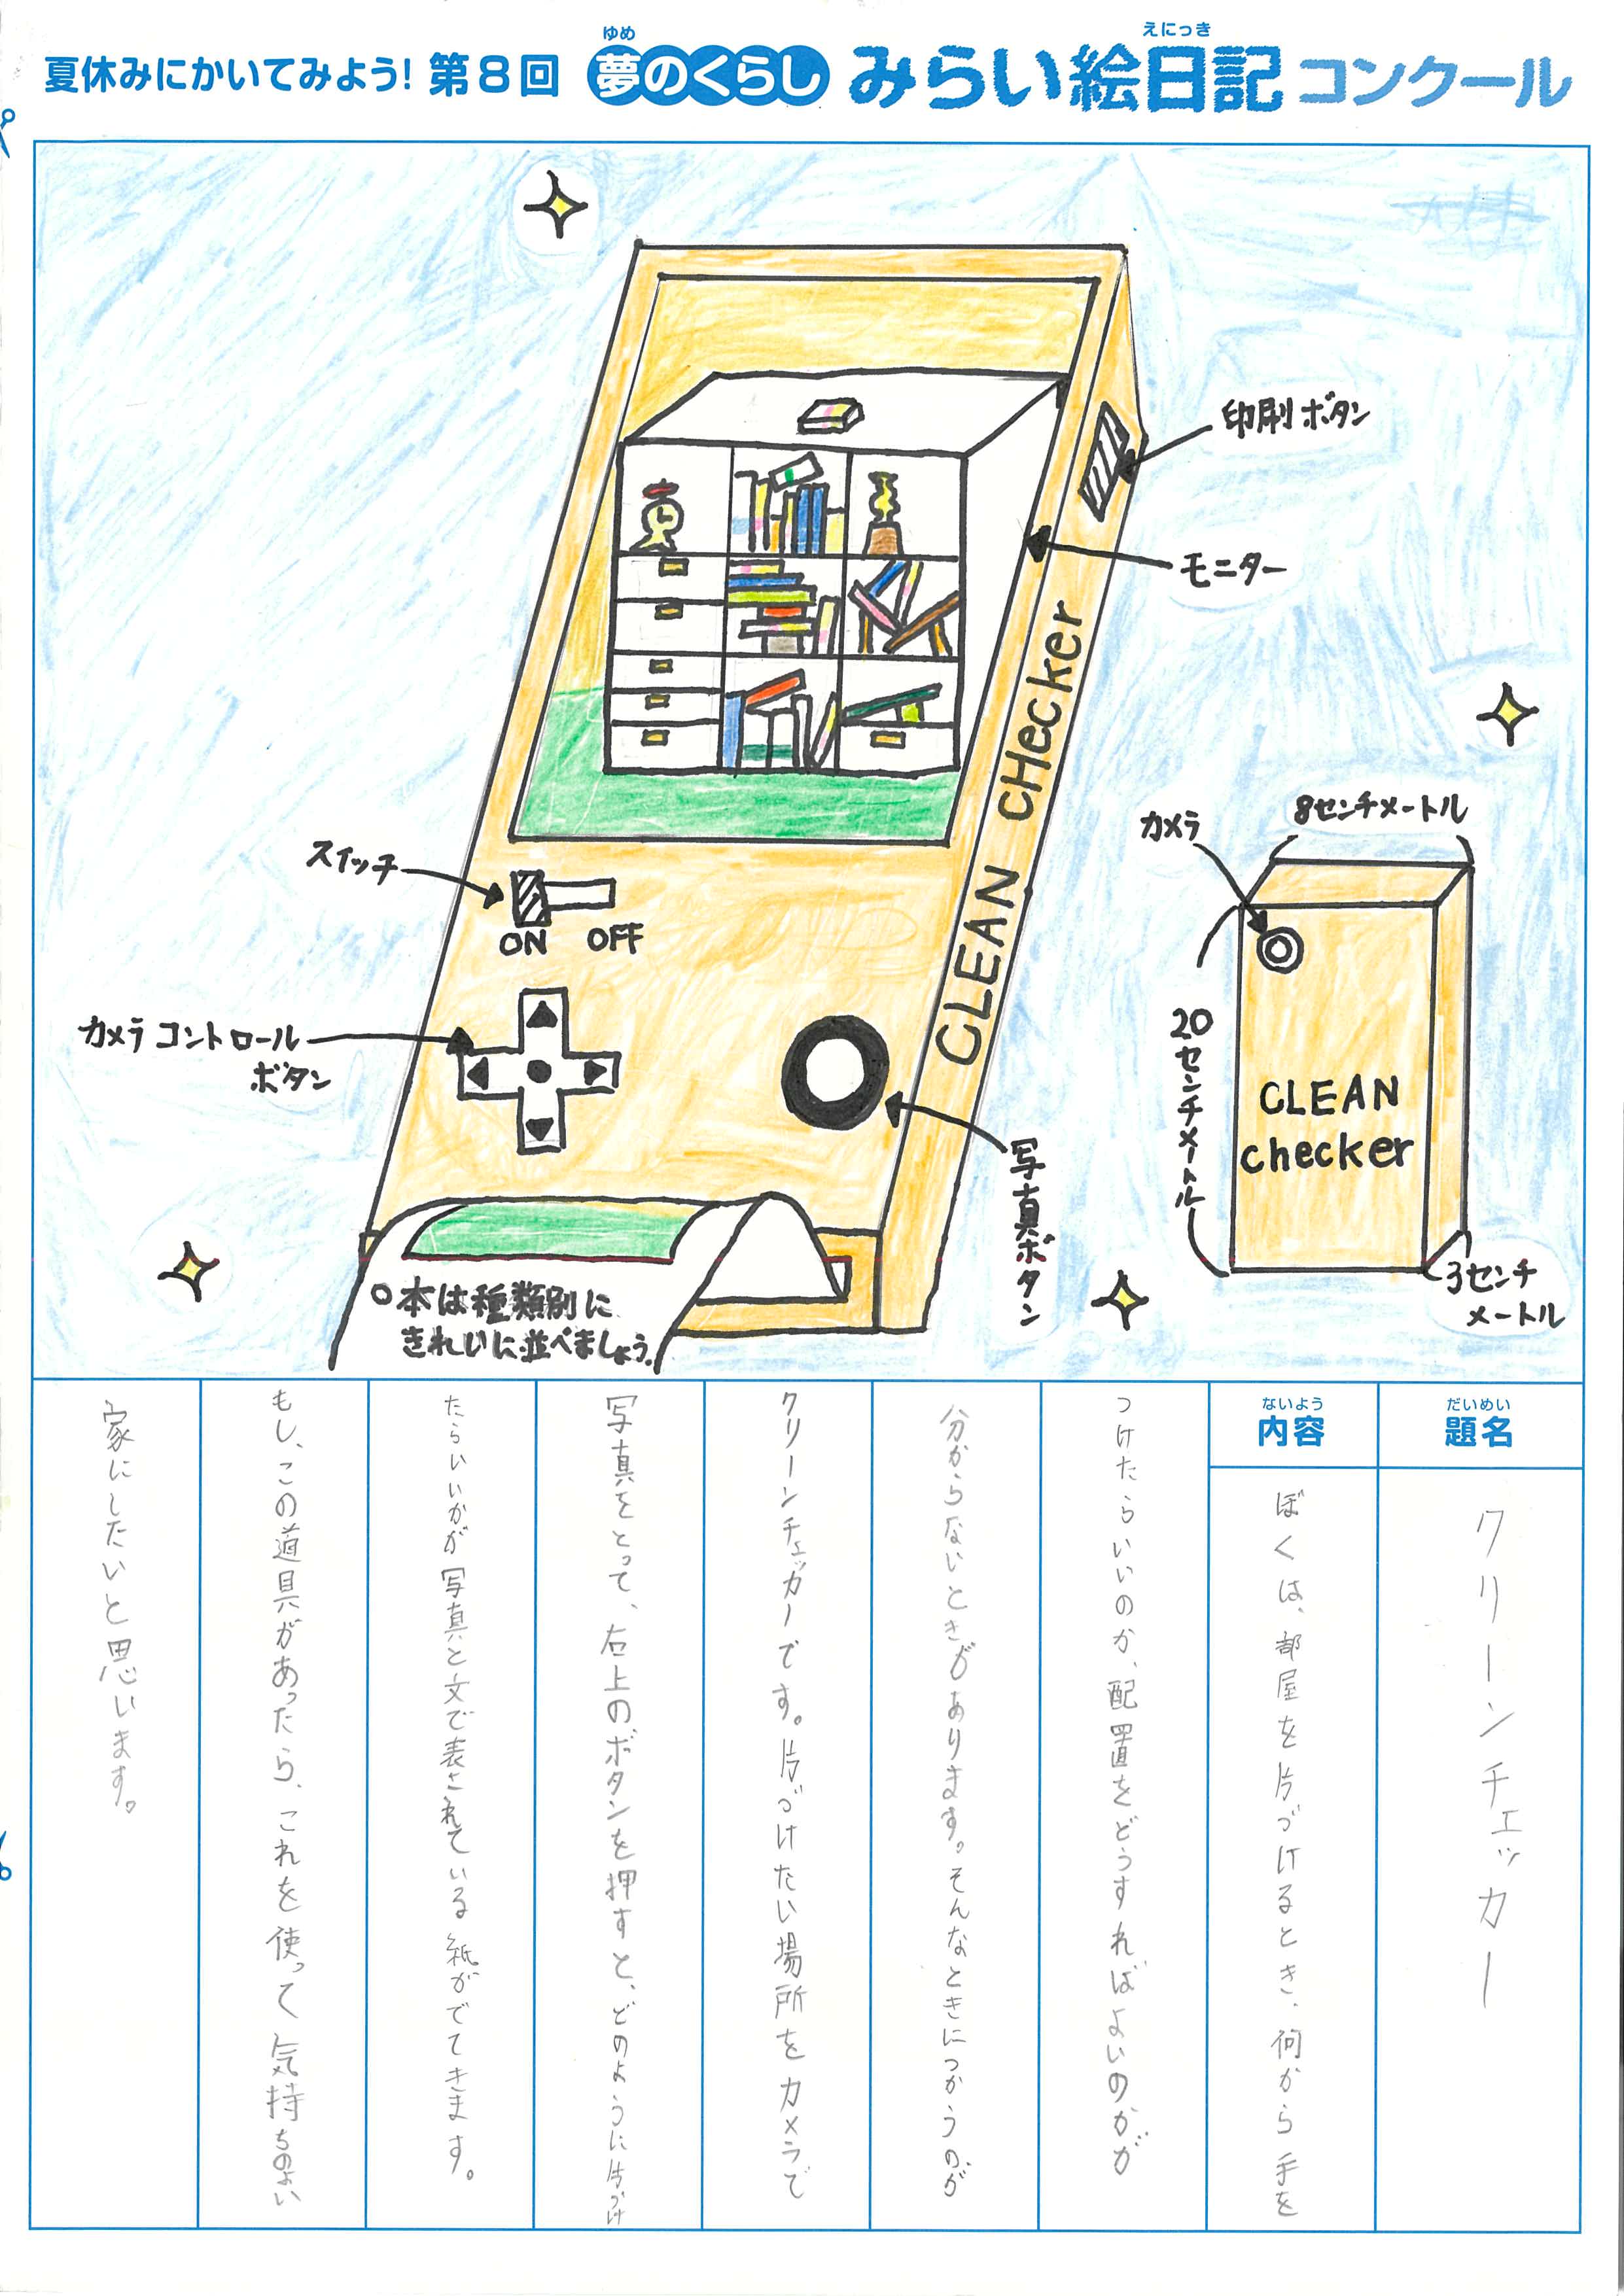 夏休みにかいてみよう! 第8回 夢のくらし みらい絵日記 コンクール
ゆめ
えにっき
印刷ボタン
モニター
CLEAN CHecker
スイッチ
ON OFF
カメラコントロール
ボタン
写真ボタン
○本は種類別に
きれいに並べましょう。
カメラ
8センチメートル
20センチメートル
CLEAN
checker
3センチ
メートル
だいめい
題名
クリーンチェッカー
ないよう
内容
ぼくは、部屋を片づけるとき、何から手を
つけたらいいのか、配置をどうすればよいのかが
分からないときがあります。そんなときにつかうのが
クリーンチェッカーです。片づけたい場所をカメラで
写真をとって、右上のボタンを押すと、どのように片づけ
たらいいかが写真と文で表されている紙がでてきます。
もし、この道具があったら、これを使って気持ちのよい
家にしたいと思います。